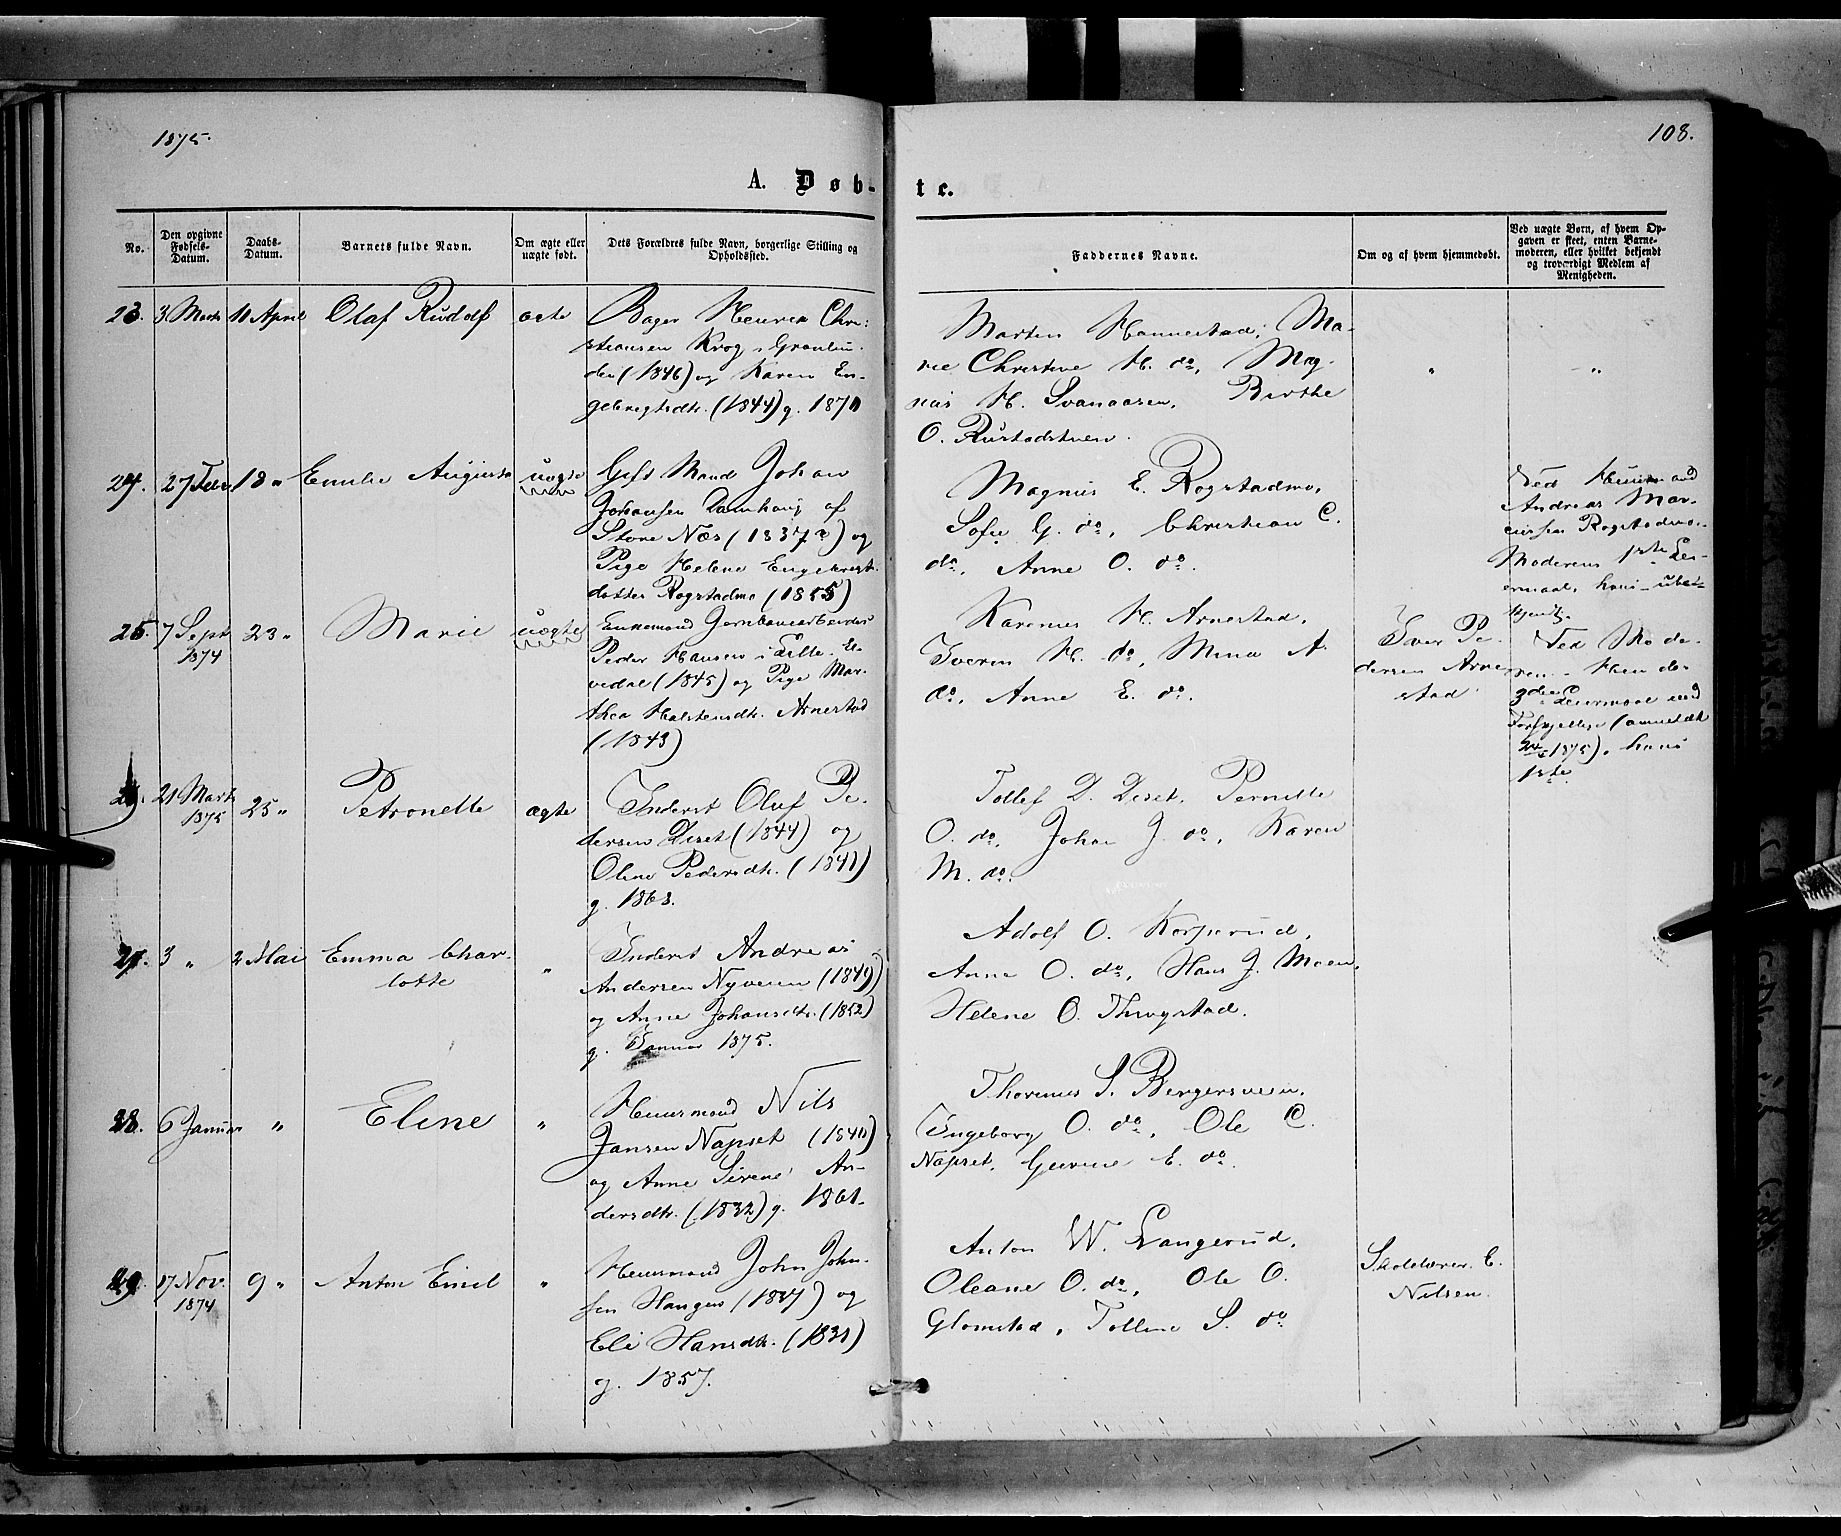 1875.
108.
A. Døb-
te.
No.
Den opgivne Fødsels-Datum.
Daabs-Datum.
Barnets fulde Navn.
Om ægte eller uægte født.
Dets Forældres fulde Navn, borgerlige Stilling og Opholdssted.
Faddernes Navne.
Om og af hvem hjemmedøbt.
Ved uægte Børn, af hvem Opgaven er skeet, enten Barnemoderen, eller hvilket bekjendt og troværdigt Medlem af Menigheden.
23. 3 Marts 11 April Olaf Rudolf ægte
Bager Henrik Chri-
stiansen Krog i Grønlun-
den (1846) og Karen En-
gebregtsdtr. (1844) g. 1870
Martin Hannestad, Ma-
rie Christine H. do, Mag-
nus H. Svanaasen, Birthe
O. Rustadstuen.
"
"
24. 27 Febr 18 " Emilie Augusta uægte
Gift Mand Johan
Johansen Damhaug af
Store Næs (1837?) og
Pige Helene Engebregts-
datter Rogstadmo (1855)
Magnus E. Rogstadmo,
Sofie G. do, Christian C.
do, Anne O. do.
Ved Huusmand
Andreas Mar-
cussen Rogstadmo.
Moderens 1ste Lei-
ermaal, hans ube-
kjendt.
25. 7 Sept 1874 23 " Marie uægte
Enkemand Jernbanearbeider
Peder Hansen i Lille El-
vedal (1845) og Pige Mar-
thea Halstensdtr. Arnestad
(1843)
Karenus H. Arnestad,
Iverin H. do, Mina A.
do, Anne E. do.
Iver Pe-
dersen Arne-
stad
Ved Mode-
ren. Hendes
3die Leiermaal med
Forskjellige (anmeldt
24/4 1875), hans
1ste.
26. 21 Marts 1875 25 " Petronelle ægte
Inderst Oluf Pe-
dersen Diset (1844) og
Oline Pedersdtr. (1841)
g. 1868.
Tollef D. Diset, Pernille
O. do, Johan J. do, Karen
M. do.
27. 3 " 2 Mai Emma Char-
lotte
"
Inderst Andreas
Andersen Nyveien (1849)
og Anne Johansdtr. (1852)
g. Januar 1875.
Adolf O. Korperud,
Anne O. do, Hans J. Moen,
Helene O. Thrygstad.
28. 6 Januar " Eline "
Huusmand Nils
Jansen Napset (1840)
og Anne Sirene An-
dersdtr. (1832) g. 1861.
Thorinus S. Bergersveen,
Ingeborg O. do, Ole C.
Napset, Gurine E. do.
29. 17 Nov. 1874 9 " Anton Emil "
Huusmand John John-
sen Haugen (1837) og
Eli Hansdtr. (1831)
g. 1857.
Anton W. Langerud,
Oleane O. do, Ole O.
Glomstad, Tolline S. do
Skolelærer E.
Nilsen.